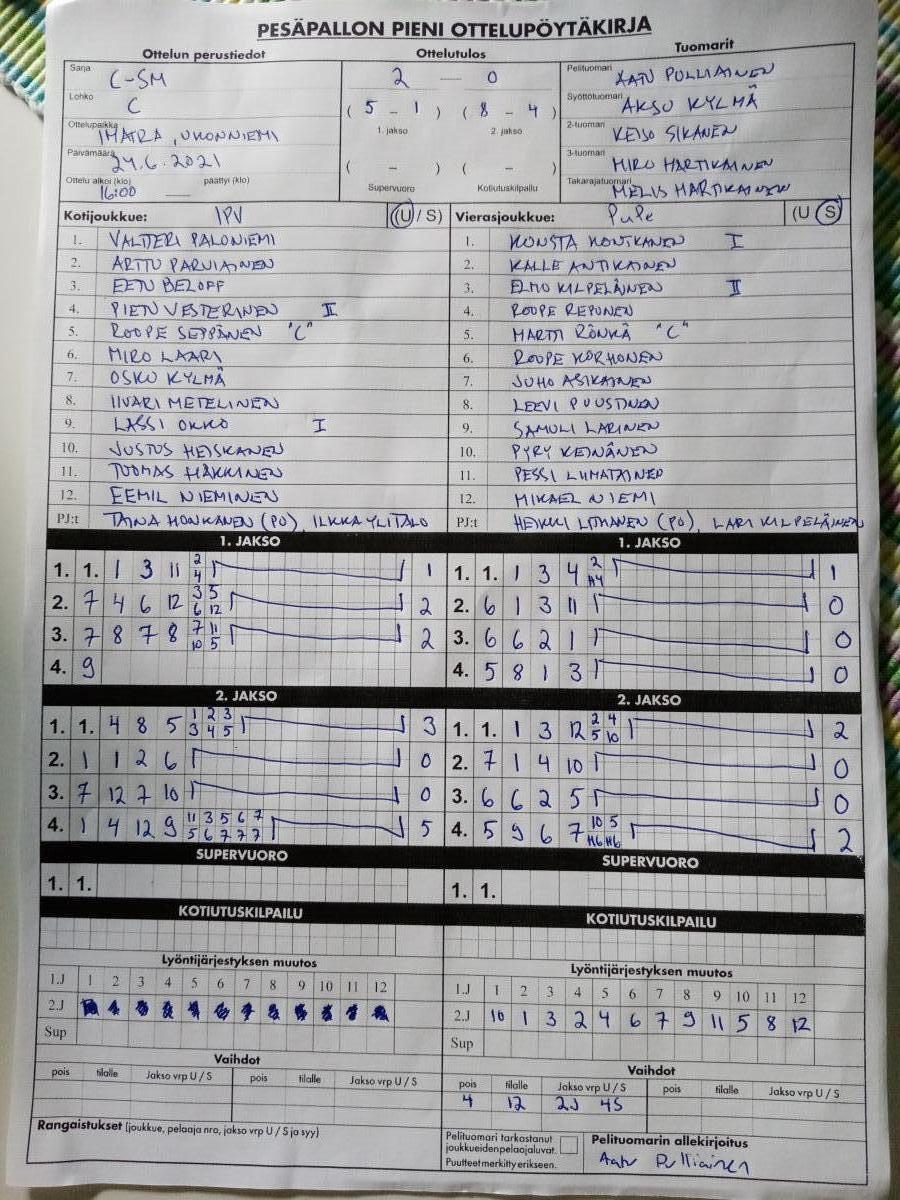 PESÄPALLON PIENI OTTELUPÖYTÄKIRJA
Ottelun perustiedot
Sarja C-SM
Lohko C
Ottelupaikka IMATRA, UKONNIEMI
Päivämäärä 24.6.2021
Ottelu alkoi (klo) 16:00 päättyi (klo)
Ottelutulos
2 — 0
( 5 - 1 ) ( 8 - 4 )
1. jakso 2. jakso
( - ) ( - )
Supervuoro Kotiutuskilpailu
Tuomarit
Pelituomari AATU PULLIAINEN
Syöttötuomari AKSU KYLMÄ
2-tuomari KEIJO SIKANEN
3-tuomari MIRO HARTIKAINEN
Takarajatuomari MELIS HARTIKAINEN
Kotijoukkue: IPV (U / S)
1. VALTTERI PALONIEMI
2. ARTTU PARVIAINEN
3. EETU BELOFF
4. PIETU VESTERINEN II
5. ROOPE SEPPÄNEN "C"
6. MIRO LAARI
7. OSKU KYLMÄ
8. IIVARI METELINEN
9. LASSI OKKO I
10. JUSTUS HEISKANEN
11. TUOMAS HÄKKINEN
12. EEMIL NIEMINEN
PJ:t TAINA HONKANEN (PO), ILKKA YLITALO
Vierasjoukkue: PuPe (U S)
1. KONSTA KONTKANEN I
2. KALLE ANTIKAINEN
3. ELMO KILPELÄINEN II
4. ROOPE REPONEN
5. MARTTI RÖNKÄ "C"
6. ROOPE KORHONEN
7. JUHO ASIKAINEN
8. LEEVI PUUSTINEN
9. SAMULI LARINEN
10. PYRY KEINÄNEN
11. PESSI LIIMATAINEN
12. MIKAEL NIEMI
PJ:t HEIKKI (PO), LARI KILPELÄINEN
1. JAKSO
1. 1. 1 3 11 2 4 1
2. 7 4 6 12 3 5 6 12 2
3. 7 8 7 8 7 11 10 5 2
4. 9
1. JAKSO
1. 1. 1 3 4 2 H4 1
2. 6 1 3 11 0
3. 6 6 2 1 0
4. 5 8 1 3 0
2. JAKSO
1. 1. 4 8 5 1 2 3 3 4 5 3
2. 1 1 2 6 0
3. 7 12 7 10 0
4. 1 4 12 9 11 3 5 6 7 5 6 7 7 7 5
2. JAKSO
1. 1. 1 3 12 2 4 5 10 2
2. 7 1 4 10 0
3. 6 6 2 5 0
4. 5 9 6 7 10 5 H6 H6 2
SUPERVUORO
1. 1.
SUPERVUORO
1. 1.
KOTIUTUSKILPAILU
KOTIUTUSKILPAILU
Lyöntijärjestyksen muutos
1.J 1 2 3 4 5 6 7 8 9 10 11 12
2.J
Sup
Lyöntijärjestyksen muutos
1.J 1 2 3 4 5 6 7 8 9 10 11 12
2.J 10 1 3 2 4 6 7 9 11 5 8 12
Sup
Vaihdot
pois tilalle Jakso vrp U / S pois tilalle Jakso vrp U / S
Vaihdot
pois tilalle Jakso vrp U / S pois tilalle Jakso vrp U / S
4 12 2J 4S
Rangaistukset (joukkue, pelaaja nro, jakso vrp U / S ja syy)
Pelituomari tarkastanut
joukkueidenpelaajaluvat.
Puutteet merkitty erikseen.
Pelituomarin allekirjoitus
Aatu Pulliainen